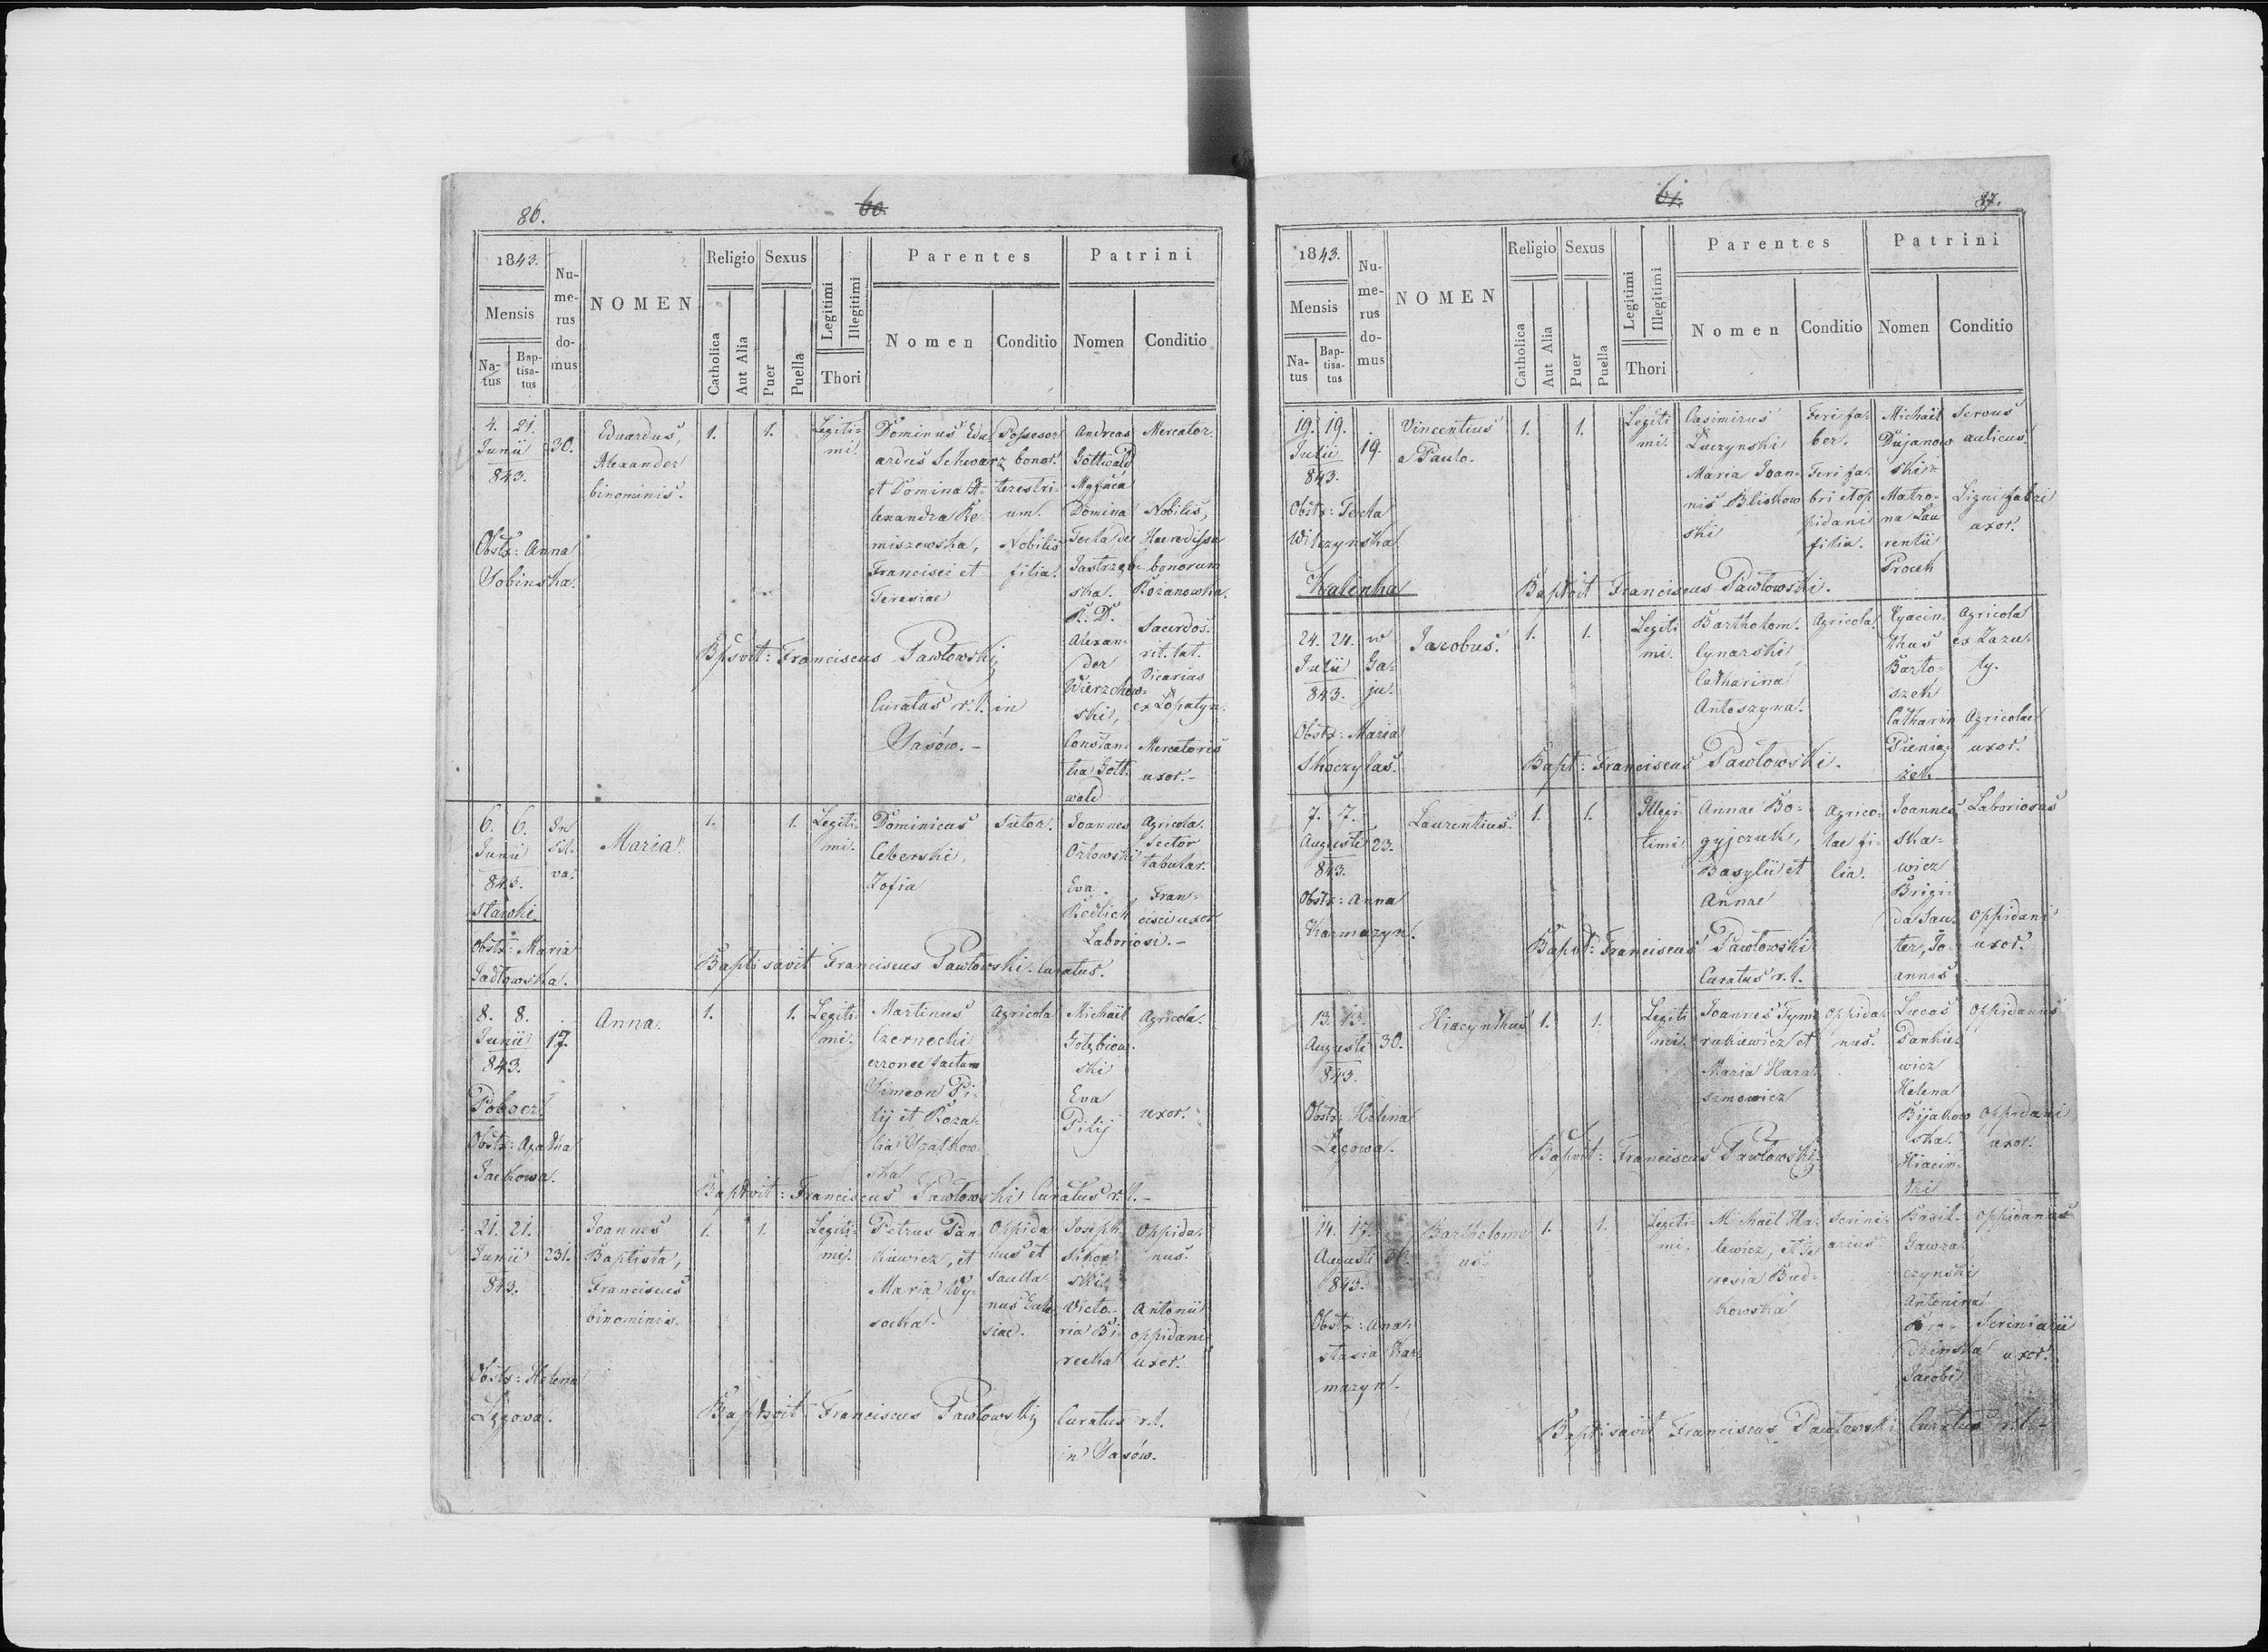 86.
60
1843.
Nu-
me-
rus
do-
mus
NOMEN
Religio
Sexus
Legitimi
Illegitimi
Parentes
Patrini
Mensis
Na-
tus
Bap-
tisa-
tus
Catholica
Aut Alia
Puer
Puella
Thori
Nomen
Conditio
Nomen
Conditio
4. 21.
Junii
843.
Obstx: Anna
Sobinska.
30.
Eduardus,
Alexander
binominis.
1.
1.
Legiti-
mi.
Dominus Edu-
ardus Schwarz
et Domina A-
lexandra Re-
miszewska,
Francisci et
Teresiae
Possesor
bonor.
terestri-
um.
Nobilis
filia.
Andreas
Gottwald
Domina
Tecla de
Jastrzęb-
ska.
R. D.
Alexan-
der
Wierzchow-
ski,
Constan-
tia Gott-
wald
Mercator.
Nobilis,
Haeredissa
bonorum
Rożanowka.
Sacerdos.
rit. lat.
Vicarius
ex Łopatyn.
Mercatoris
uxor.-
Bpsvit: Franciscus Pawłowski,
Curatus r. l. in
Jasów.-
6. 6.
Junii
843.
Stawki
Obstx: Maria
Jadłowska.
In
Sil-
va.
Maria
1.
1.
Legiti-
mi.
Dominicus
Ceberski,
Zofia
Sutor.
Joannes
Orłowski
Eva
Redlich
Laboriosi.-
Agricola.
Sector
tabular.
Fran-
cisci uxor
Baptisavit Franciscus Pawłowski. Curatus.
8. 8.
Junii
843.
Pobocz
Obstx: Agatha
Jackowa.
17.
Anna.
1.
1.
Legiti-
mi.
Martinus
Czernecki
erronee factum
Simeon Pi-
lij et Roza-
lia
ska
Agricola
Michaël
Gołębiow-
ski
Eva
Pilij
Agricola.
uxor.
Baptvit: Franciscus Pawłowski Curatus r. l.-
21. 21.
Junii
843.
Obstx: Helena
Lęgowa.
231.
Joannes
Baptista,
Franciscus
binominis.
1.
1.
Legiti-
mi.
Petrus Pan-
kiewicz, et
Maria Wy-
socka.
Oppida
nus et
Joseph.
Sikor-
ski
Victo-
ria Bi-
recka
Oppida-
nus.
Antonii
oppidani
uxor.
Baptsvit Franciscus Pawłowski, Curatus r. l.
in Jasów.
61.
87.
1843.
Nu-
me-
rus
do-
mus
NOMEN
Religio
Sexus
Legitimi
Illegitimi
Parentes
Patrini
Mensis
Na-
tus
Bap-
tisa-
tus
Catholica
Aut Alia
Puer
Puella
Thori
Nomen
Conditio
Nomen
Conditio
19. 19.
Julii
843.
Obstx: Tecla
Wilczynska
Kalenka
19.
Vincentius
a Paulo.
1.
1.
Legiti
mi.
Casimirus
Łuczynski
Maria Joan-
nis Bliskow
ski
Feri fa-
ber.
Feri fa-
bri et op
pidani
filia.
Michaël
Dujanow
ski
Matro-
na Lau
rentii
Procek
Servus
aulicus
Ligni fabri
uxor.
Baptvit Franciscus Pawłowski.
24. 24.
Julii
843.
Obstx: Maria
Skoczylas.
w
Ga-
ju.
Jacobus.
1.
1.
Legiti
mi.
Bartholom.
Cynarski
Catharina
Antoszyna.
Agricola
Hyacin-
thus
Barto-
szek
Catharin
Pienią-
żek
Agricola
ex Łazu-
ty.
Agricolae
uxor.
Bapt: Franciscus Pawłowski.
7. 7.
Augusti
843.
Obstx: Anna
Karmazyn.
23.
Laurentius.
1.
1.
Illegi-
timi
Annae Bo-
gyjczak,
Basylii et
Annae
Agrico-
lae fi-
lia.
Joannes
Ska-
wicz
Brigi-
da Sau-
ter, Jo-
annis
Laboriosus
oppidani
uxor.
Bapvt: Franciscus Pawłowski
Curatus r. l.
13. 13.
Augusti
843.
Obstx: Helena
Lęgowa.
30.
Hiacynthus
1.
1.
Legiti
mi.
Joannes Tym-
rakiewicz et
Maria Hara-
simowicz
Oppida-
nus.
Lucas
Pankie-
wicz
Helena
Bijakow
ska.
Hiacin-
thi
Oppidanus
Oppidani
uxor.
Bapvit: Franciscus Pawłowski.
14. 17.
Augusti
843.
Obstx: Ana-
stasia Kar-
mazyn.
Bartholome
us.
1.
1.
Legiti-
mi.
Michaël Ha-
lewicz, et Te-
resia Bud-
kowska
Scrini-
arius
Basil.
Gawra-
czynski
Antonina
dzinska
Jacobi
Oppidanus
Scriniarii
uxor.
Baptisavit Franciscus Pawłowski Curatus r. l.-